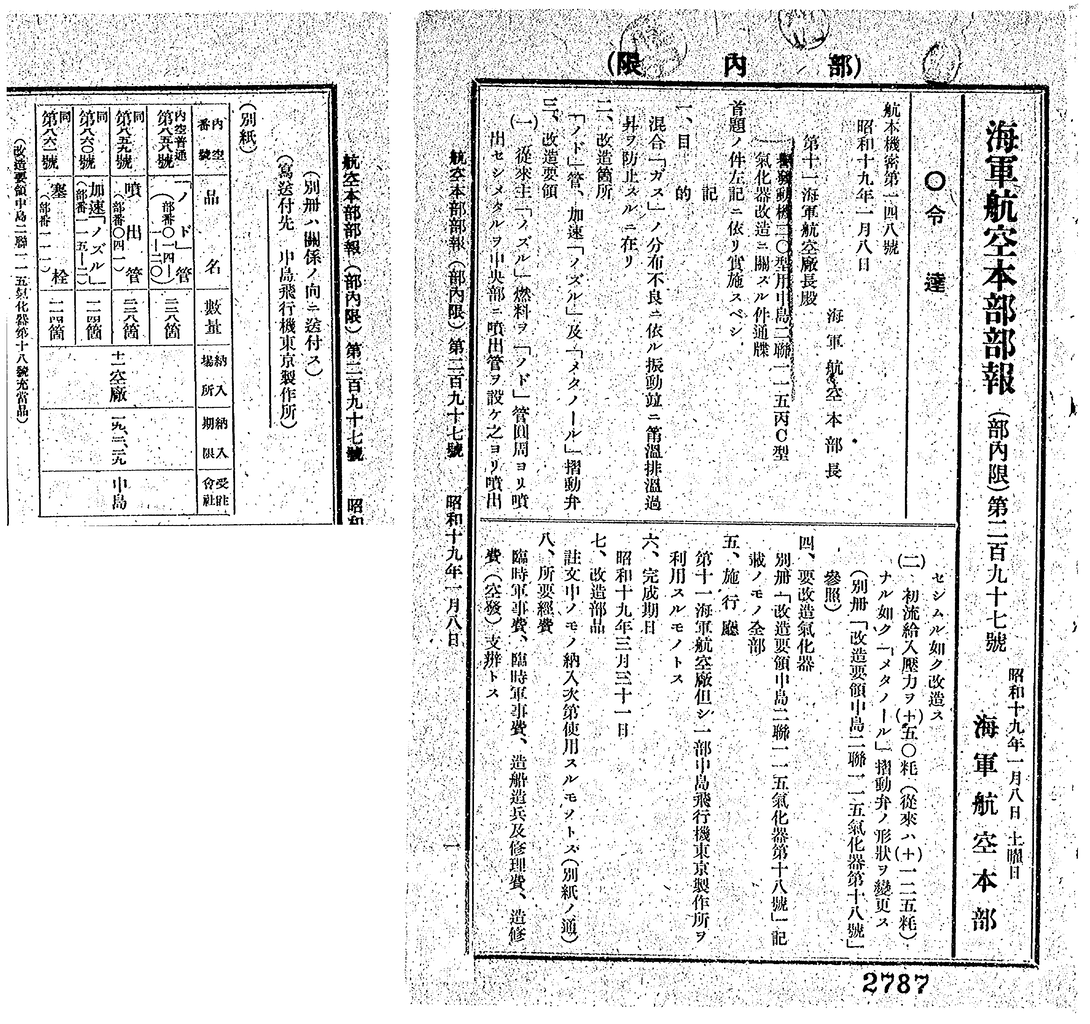 (部内限)
海軍航空本部部報(部內限)第二百九十七號
昭和十九年一月八日 土曜日
海軍航空本部
〇令達
航本機密第一四八號
昭和十九年一月八日
海軍航空本部長
第十一海軍航空廠長殿
發動機二〇型用中島二聯一一五丙C型
氣化器改造ニ關スル件通牒
首題ノ件左記ニ依リ實施スベシ
記
一、目的
混合「ガス」ノ分布不良ニ依ル振動竝ニ筩溫排溫過
昇ヲ防止スルニ在リ
二、改造箇所
「ノド」管、加速「ノズル」及「メタノール」摺動弁
三、改造要領
(一)從來主「ノズル」燃料ヲ「ノド」管圓周ヨリ噴
出セシメタルヲ中央部ニ噴出管ヲ設ケ之ヨリ噴出
セシムル如ク改造ス
(二)初流給入壓力ヲ(+)五〇粍(從來ハ(+)一二五粍)
ナル如ク「メタノール」摺動弁ノ形狀ヲ變更ス
(別册「改造要領中島二聯一一五氣化器第十八號」
參照)
四、要改造氣化器
別册「改造要領中島二聯一一五氣化器第十八號」記
載ノモノ全部
五、施行廳
第十一海軍航空廠但シ一部中島飛行機東京製作所ヲ
利用スルモノトス
六、完成期日
昭和十九年三月三十一日
七、改造部品
註文中ノモノ納入次第使用スルモノトス(別紙ノ通)
八、所要經費
臨時軍事費、臨時軍事費、造船造兵及修理費、造修
費(空發)支辨トス
航空本部部報(部內限)第二百九十七號 昭和十九年一月八日
一
2787
航空本部部報(部內限)第二百九十七號 昭和
(別册ハ關係ノ向ニ送付ス)
(寫送付先 中島飛行機東京製作所)
(別紙)
內空番號 品名 數量 納入場所 納入期限 受註會社
內空普通第八五八號 「ノド」管(部番〇一四一—一二〇) 三八箇 十一空廠 一九、二、二九 中島
同第八五九號 噴出管(部番〇四一) 三八箇
同第八六〇號 加速「ノズル」(部番一一五—二) 一一四箇
同第八六一號 塞栓(部番一一一) 一一四箇
(改造要領中島二聯一一五氣化器第十八號充當品)